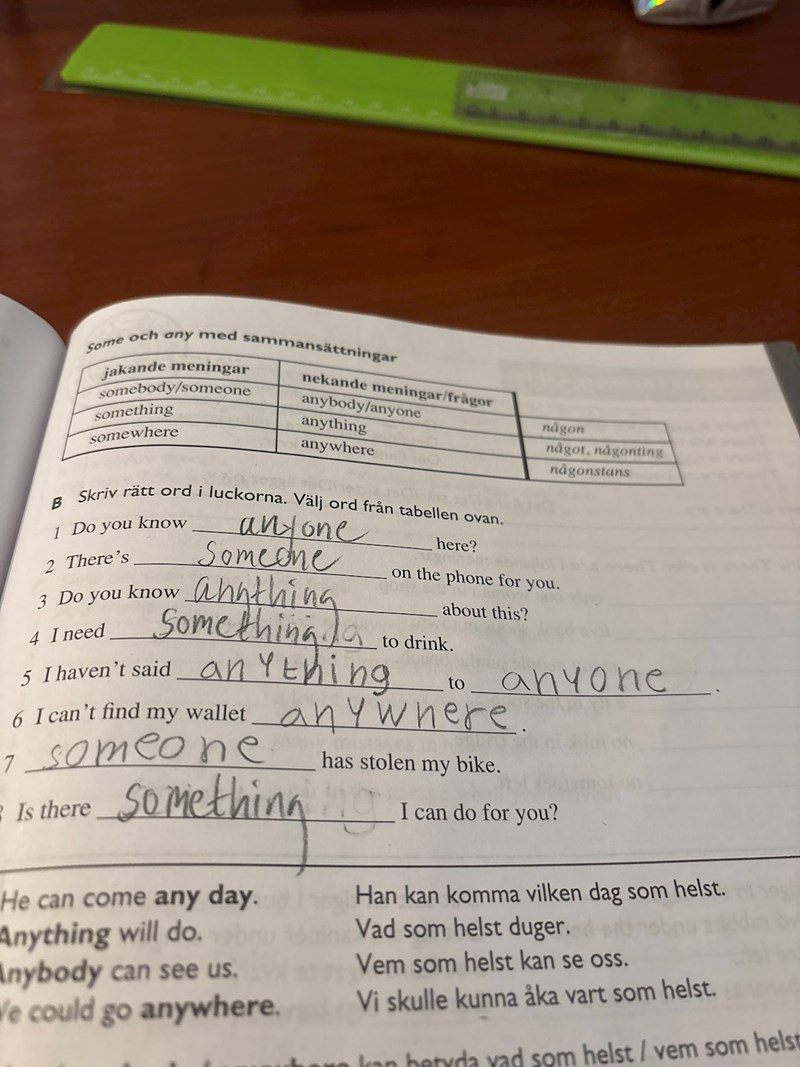 Some och any med sammansättningar
jakande meningar nekande meningar/frågor
somebody/someone anybody/anyone någon
something anything något, någonting
somewhere anywhere någonstans
B Skriv rätt ord i luckorna. Välj ord från tabellen ovan.
1 Do you know anyone here?
2 There's someone on the phone for you.
3 Do you know anything about this?
4 I need something to drink.
5 I haven't said anything to anyone.
6 I can't find my wallet anywhere.
7 someone has stolen my bike.
Is there something I can do for you?
He can come any day. Han kan komma vilken dag som helst.
Anything will do. Vad som helst duger.
Anybody can see us. Vem som helst kan se oss.
We could go anywhere. Vi skulle kunna åka vart som helst.
kan betyda vad som helst / vem som helst